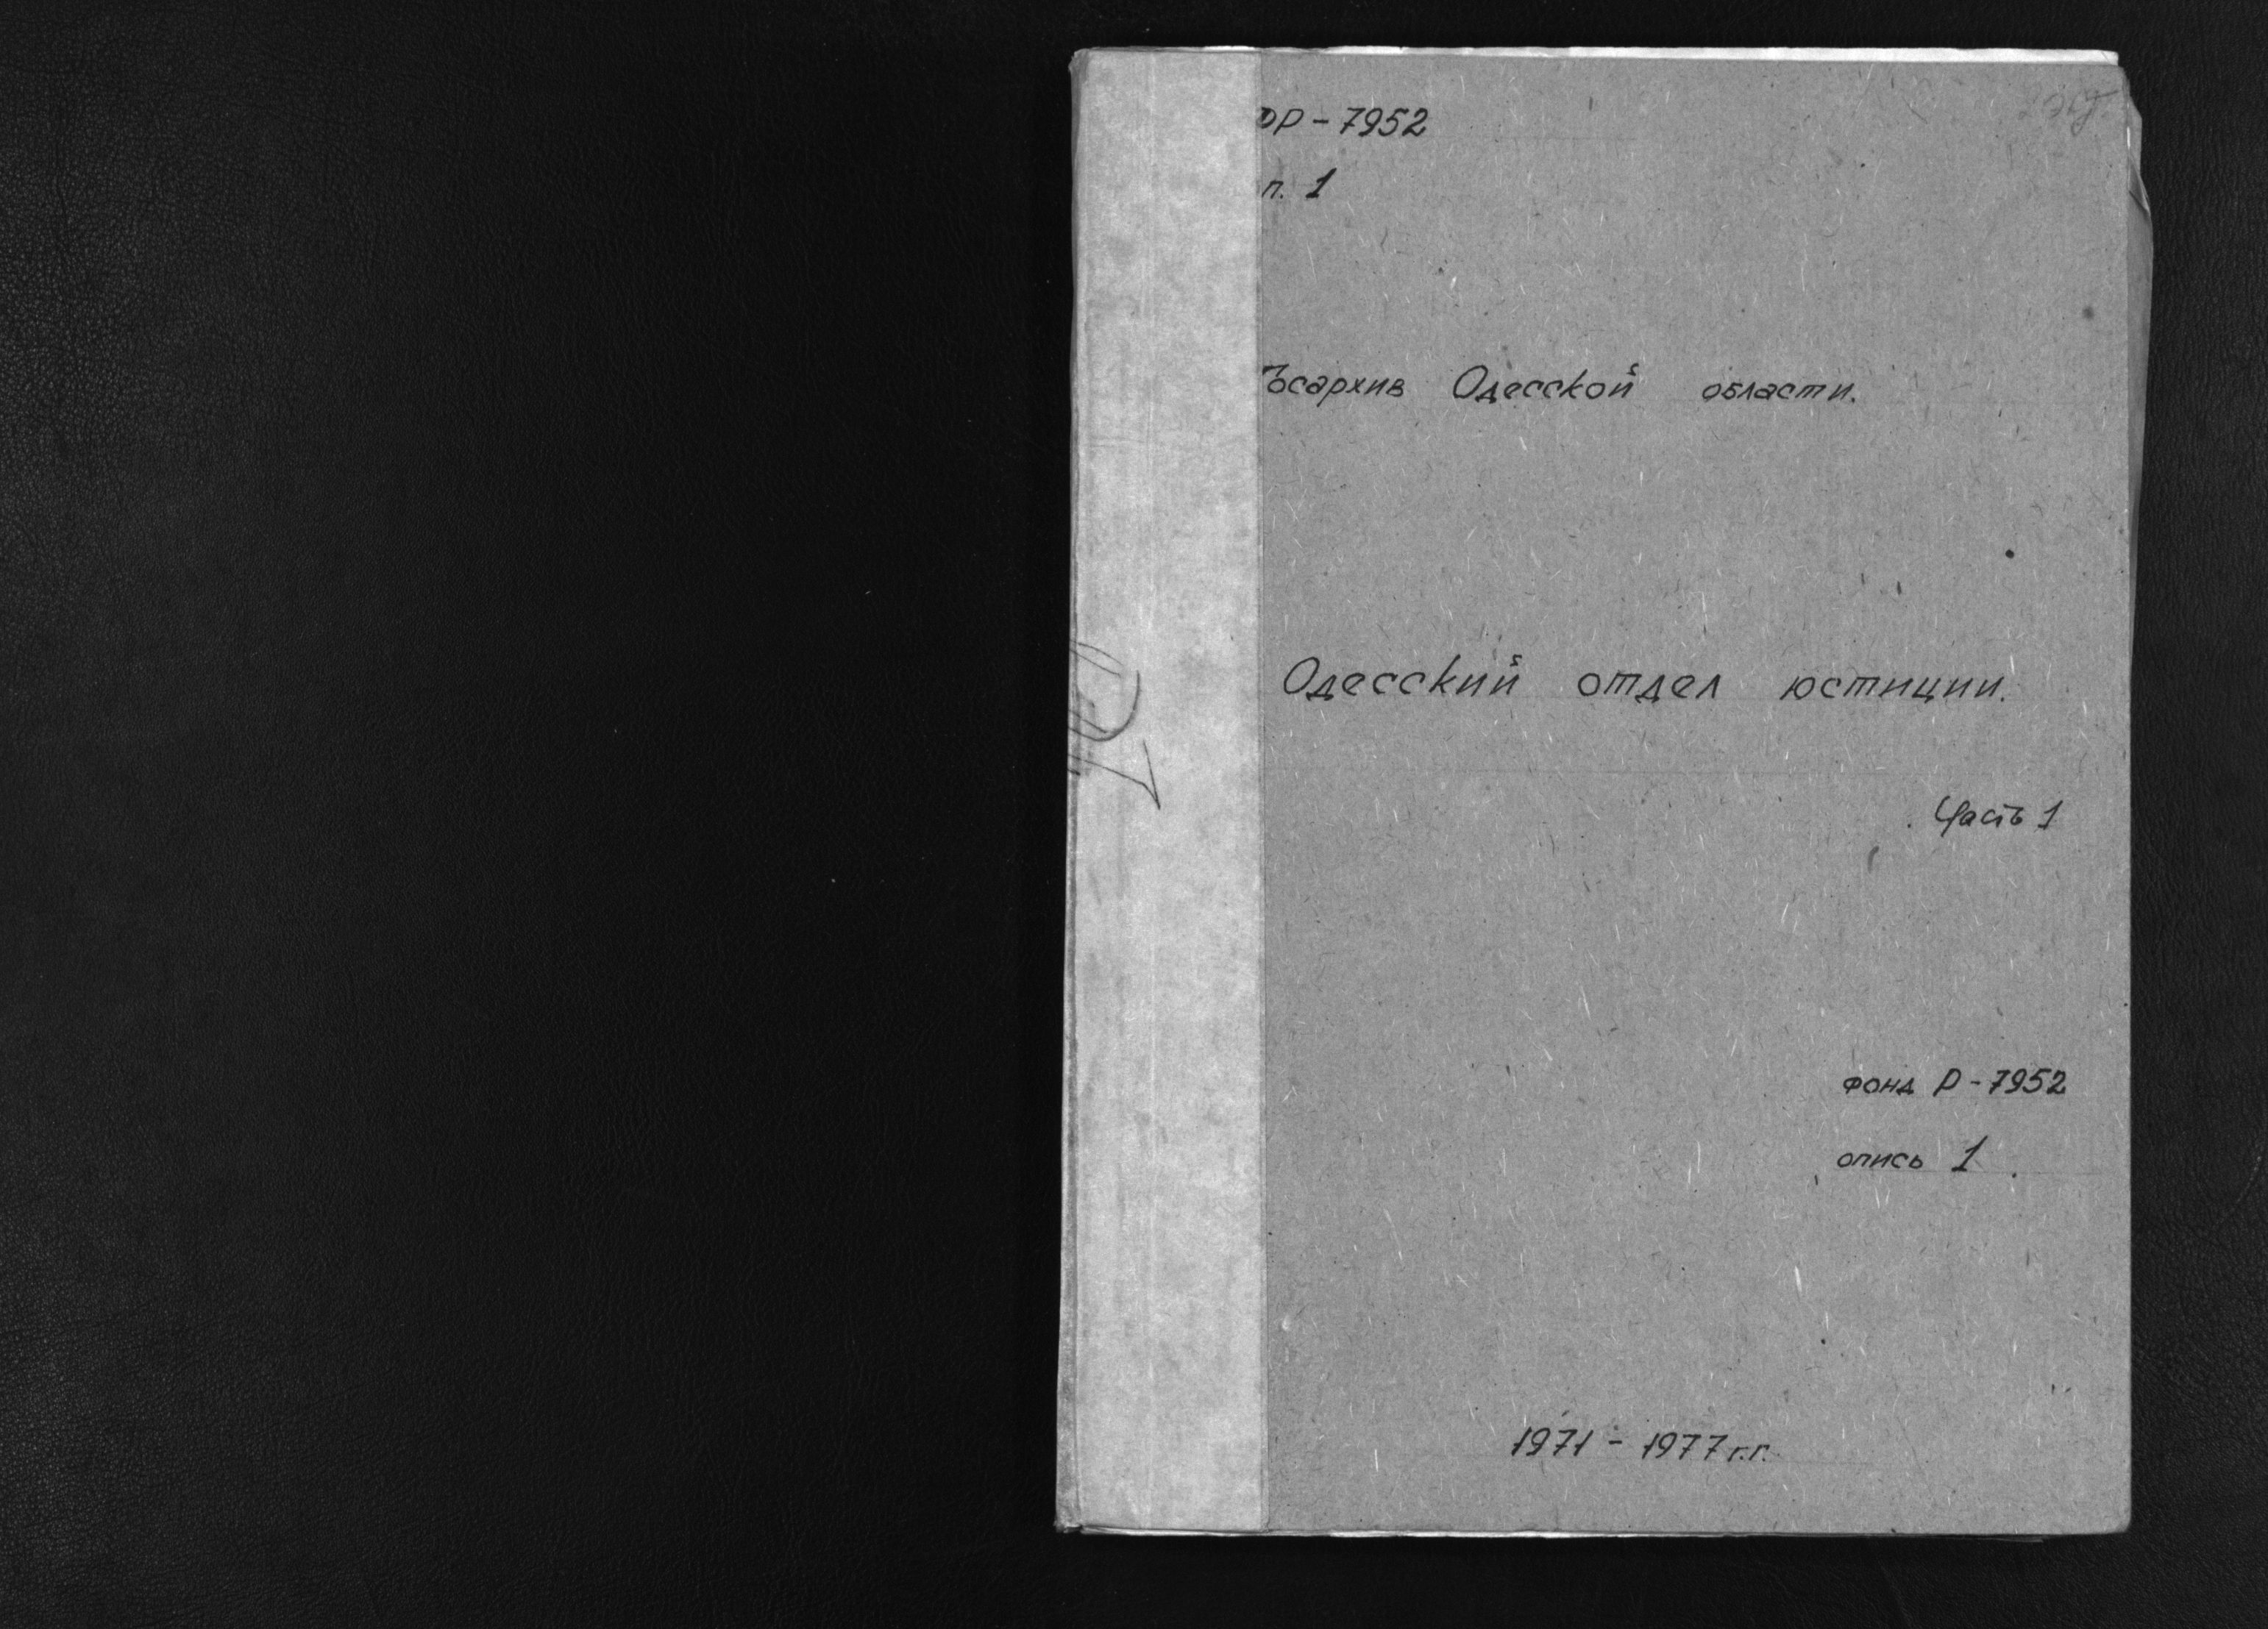 ФР - 7952
п. 1
Госархив Одесской области.
Одесский отдел юстиции.
Часть 1
фонд Р - 7952
опись 1
1971 - 1977 г.г.